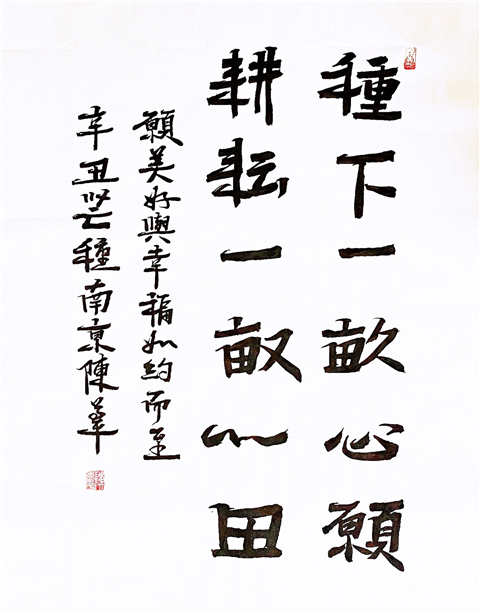 種下一畝心願
耕耘一畝心田
願美好與幸福如約而至
辛丑芒種南京陳華